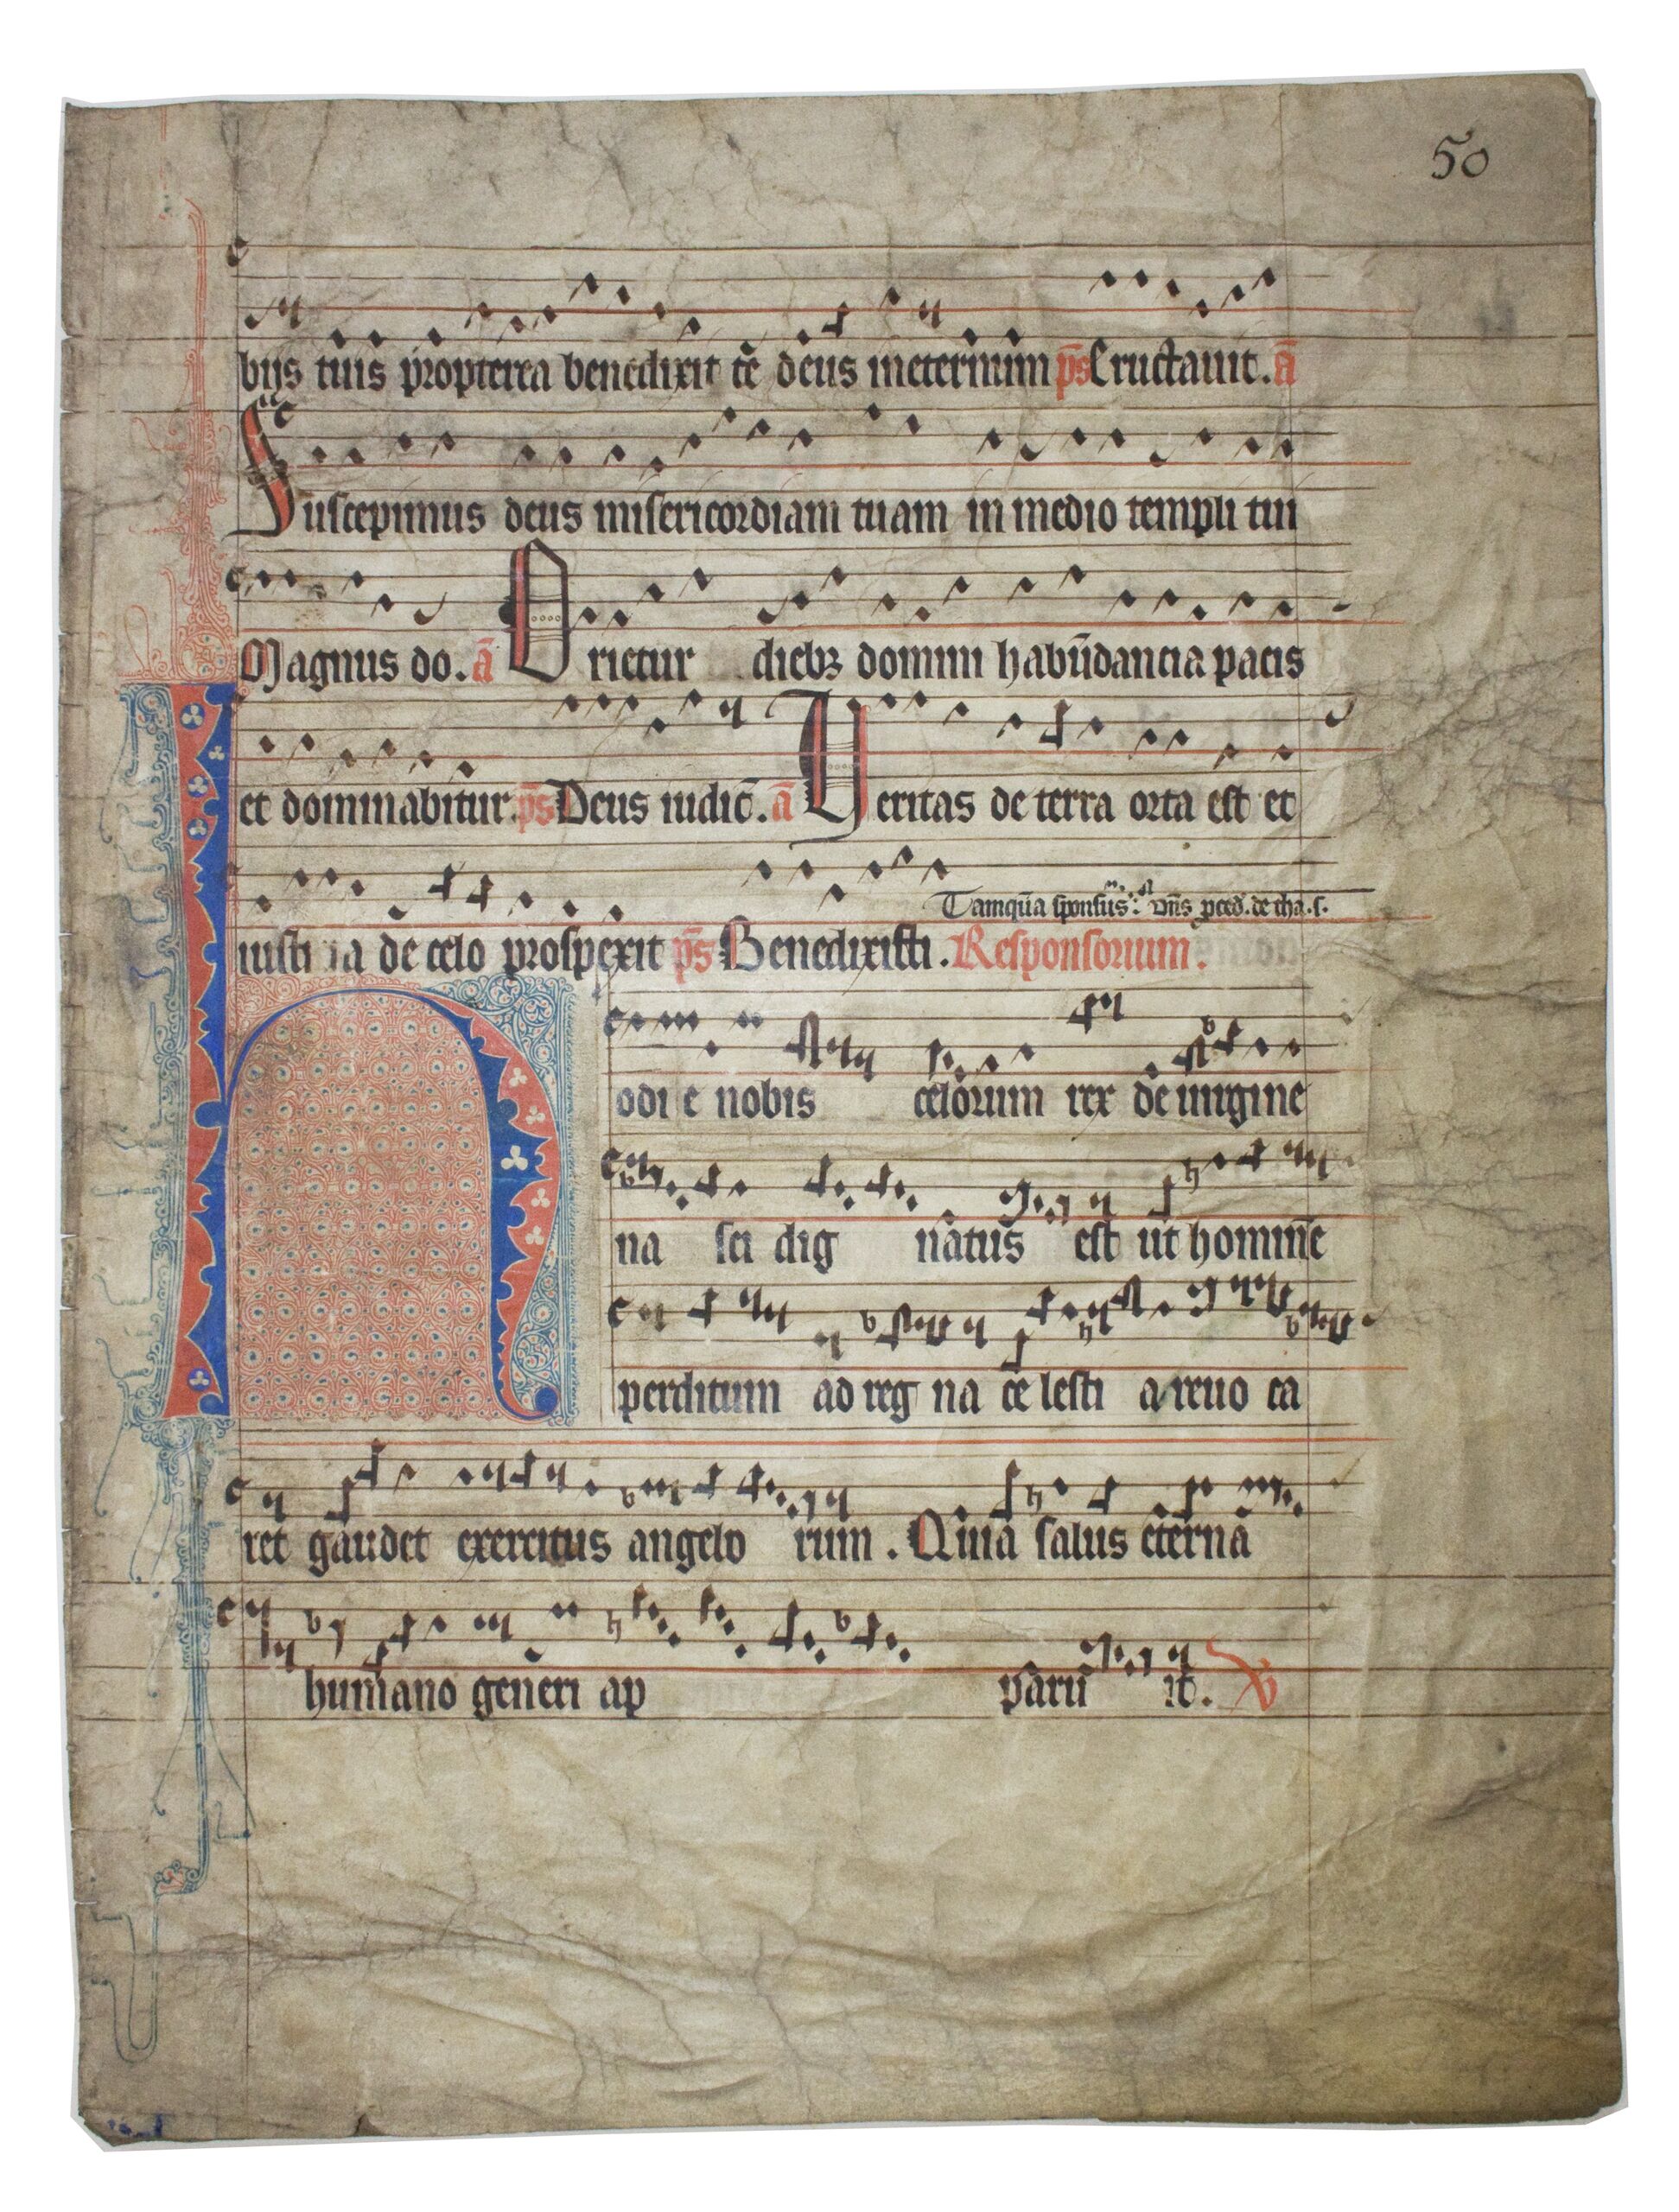 50
bijs tuis propterea benedixit te deus ineternum p̄s Eructauit. ā
Suscepimus deus misericordiam tuam in medio templi tui
Magnus do. ā Orietur diebꝫ domini habūdancia pacis
et dominabitur. p̄s Deus iudic̄. ā Veritas de terra orta est et
Tamquā sponsus: dn̄s proced. de tha. s.
iusticia de celo prospexit p̄s Benedixisti. Responsorium.
Hodi e nobis celorum rex de uirgine
na sci dig natus est ut homine
perditum ad reg na ce lesti a reuo ca
ret gaudet exercitus angelo rum. Quia salus eterna
humano generi ap paru it. V